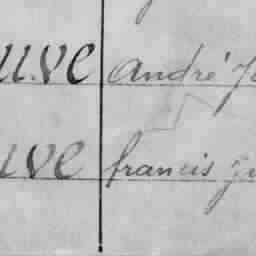 uve andré J
uve francis J